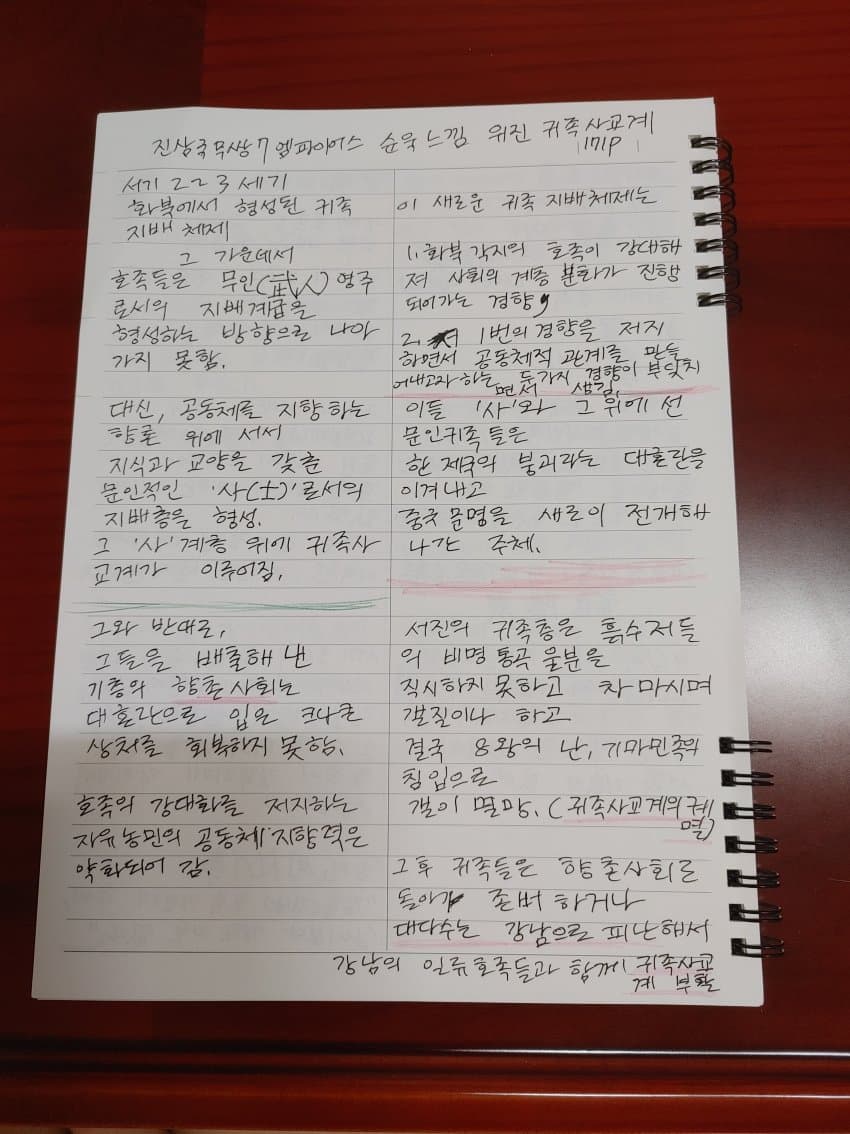 진삼국무쌍7 엠파이어스 순욱느낌 위진 귀족사교계
171p
서기 2 2 3 세기
화북에서 형성된 귀족
지배 체제
그 가운데서
호족들은 무인(武人) 영주
로써의 지배계급을
형성하는 방향으로 나아
가지 못함.
대신, 공동체를 지향하는
향론 위에 서서
지식과 교양을 갖춘
문인적인 '사(士)'로서의
지배층을 형성.
그 '사'계층 위에 귀족사
교계가 이루어짐.
그와 반대로,
그들을 배출해 낸
기층의 향촌사회는
대혼란으로 입은 크나큰
상처를 회복하지 못함.
호족의 강대화를 저지하는
자유농민의 공동체 지향력은
약화되어 감.
이 새로운 귀족 지배체제는
1. 화북 각지의 호족이 강대해
져 사회의 계층 분화가 진행
되어가는 경향,
2. 1번의 경향을 저지
하면서 공동체적 관계를 만들
어내고자 하는 두가지 경향이 부딪치
면서 생김.
이들 '사'와 그 위에 선
문인귀족들은
한 제국의 붕괴라는 대혼란을
이겨내고
중국문명을 새로이 전개해
나간 주체.
서진의 귀족층은 흙수저들
의 비명 통곡 울분을
직시하지 못하고 차 마시며
갬질이나 하고
결국 8왕의 난, 기마민족의
침입으로
같이 멸망. (귀족사교계의 궤
멸)
그후 귀족들은 향촌사회로
돌아가 존버 하거나
대다수는 강남으로 피난해서
강남의 일류호족들과 함께 귀족사교
계 부활